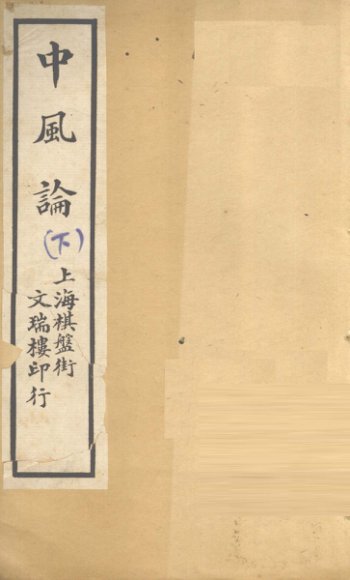 中風論
(下)
上海棋盤街
文瑞樓印行